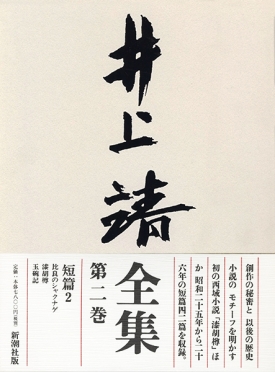 井上靖
全集
第二巻
創作の秘密と 以後の歴史
小説の モチーフを明かす
初の西域小説「漆胡樽」ほ
か 昭和二十五年から二十
六年の短篇四二篇を収録。
短篇2
比良のシャクナゲ
漆胡樽
玉碗記
新潮社版